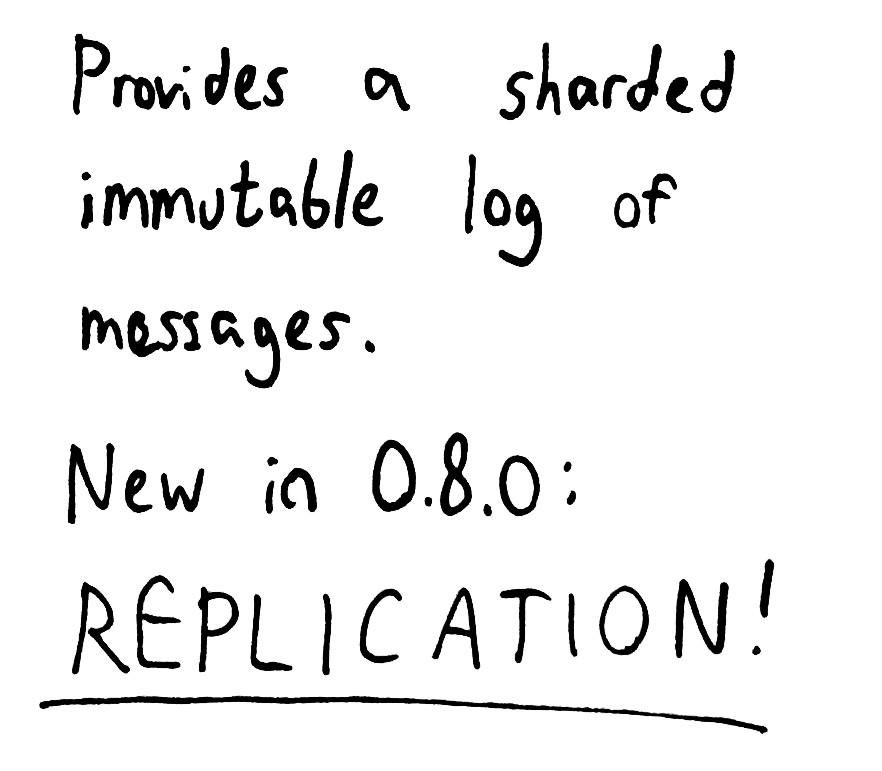 Provides a sharded
immutable log of
messages.
New in 0.8.0:
REPLICATION!